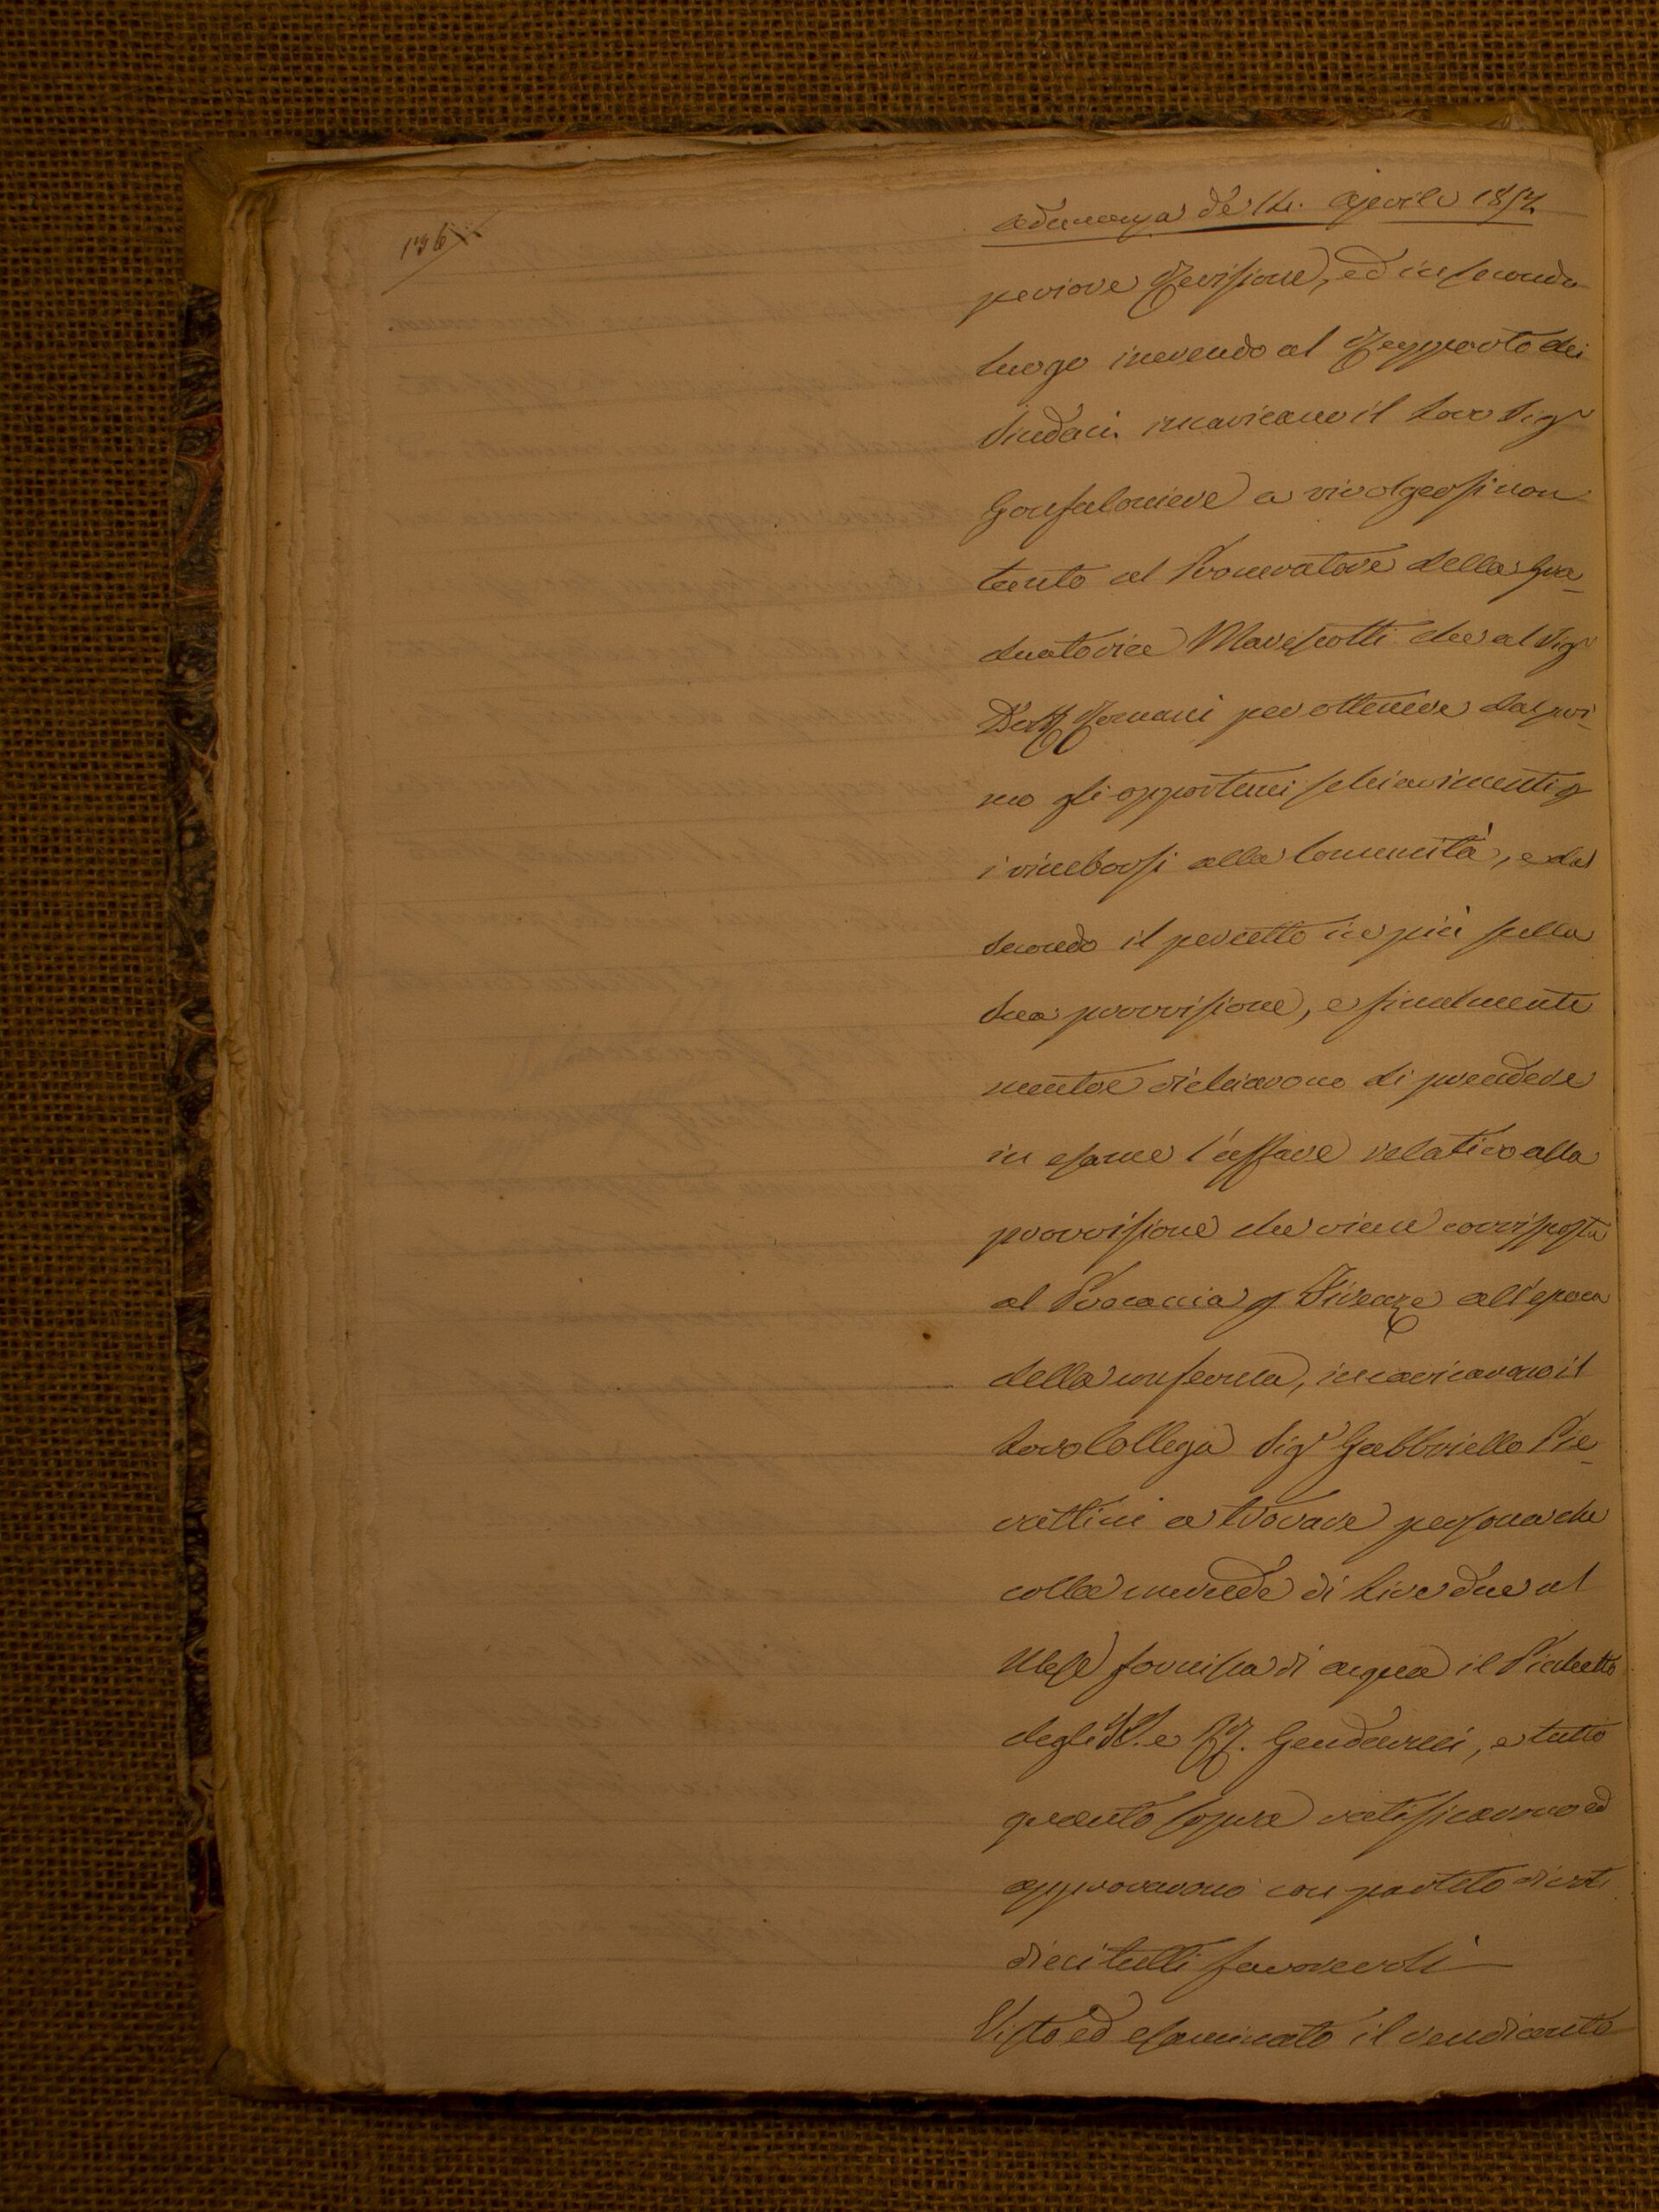 196
Adunanza de 14. Aprile 1852
periore Revisione, ed in secondo
luogo inerendo al Rapporto dei
Sindaci incaricano il loro Sigr
Gonfaloniere a rivolgersi non
tanto al Procuratore della Gra_
duatoria Marescotti che al Sigr
Dott Romani per ottenere dal pri_
mo gli opportuni schiarimenti p
i rimborsi alla Comunità, e dal
secondo il percetto in più sulla
sua provvisione, e finalmente
mentre dichiarono di prendere
in esame l'affare relativo alla
provvisione che viene corrisposta
al Procaccia p Firenze all'epoca
della conferma, incaricarono il
loro Collega Sigr Gabbriello Pie_
rattini a trovare persona che
colla mercede di Lire due al
Mese fornisca di acqua il Picchetto
degli II. e RR. Gendarmi, e tutto
quanto sopra ratificarono ed
approvarono con partito di voti
dieci tutti favorevoli
Visto ed esaminato il rendiconto